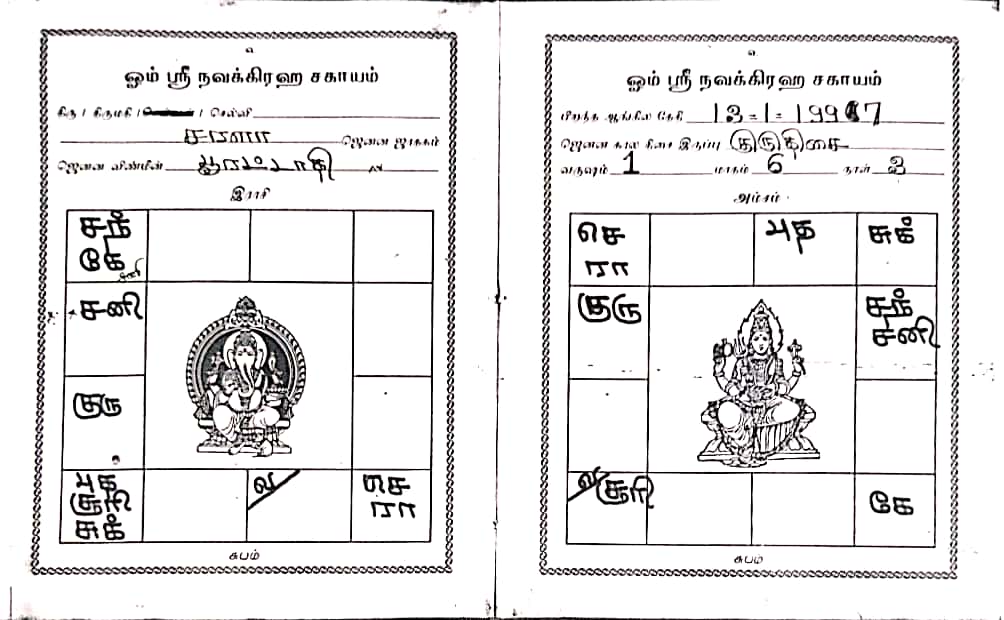 உ
ஓம் ஸ்ரீ நவக்கிரஹ சகாயம்
திரு / திருமதி / செல்வன் / செல்வி
சரளா ஜெனன ஜாதகம்
ஜெனன விண்மீன் பூரட்டாதி
இராசி
சந்
கே
சனி
குரு
புத
சூரி
சுக்
ல
செ
ரா
சுபம்
உ
ஓம் ஸ்ரீ நவக்கிரஹ சகாயம்
பிறந்த ஆங்கில தேதி 13-1-1997
ஜெனன கால திசை இருப்பு குருதிசை
வருஷம் 1 மாதம் 6 நாள் 3
அம்சம்
செ
ரா
புத
சுக்
குரு
சந்
சனி
ல சூரி
கே
சுபம்